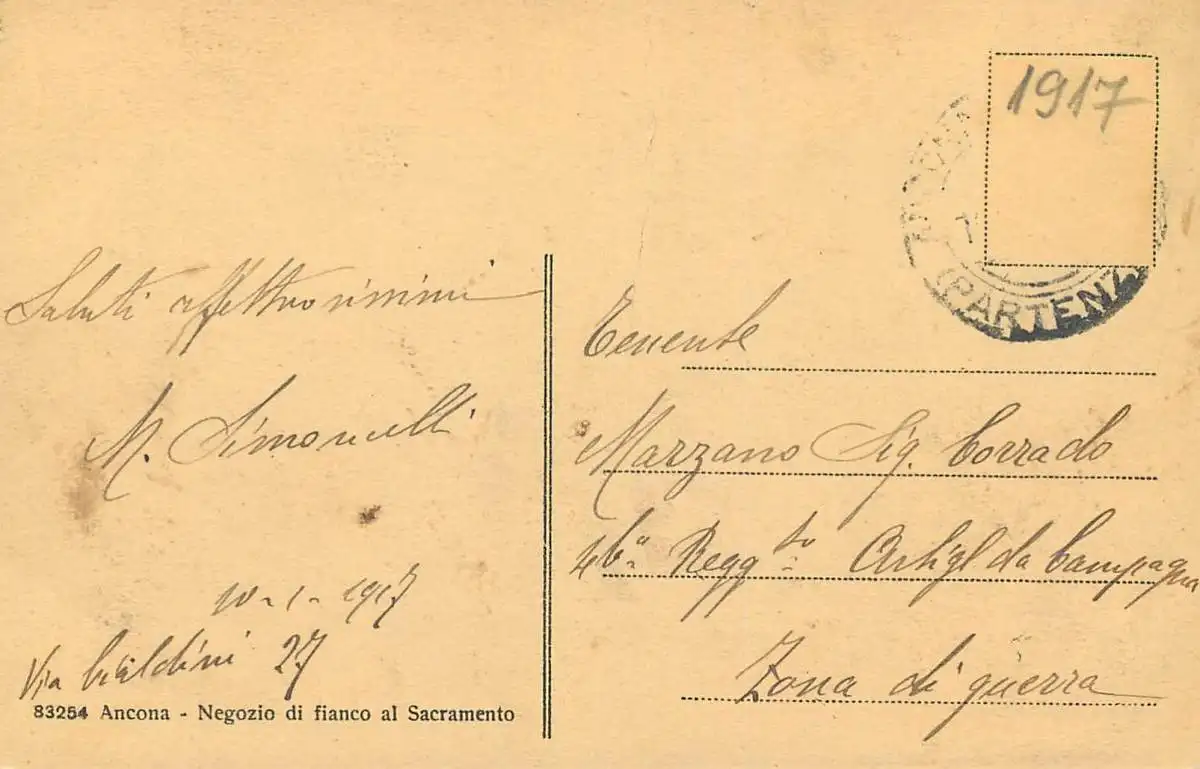 1917
(PARTENZ
Saluti affettuosissimi
M. Simoncelli
10-1-1917
Via 27
83254 Ancona - Negozio di fianco al Sacramento
Tenente
Marzano Sig. Corrado
Regg.to Artigl da Campagna
Zona di guerra